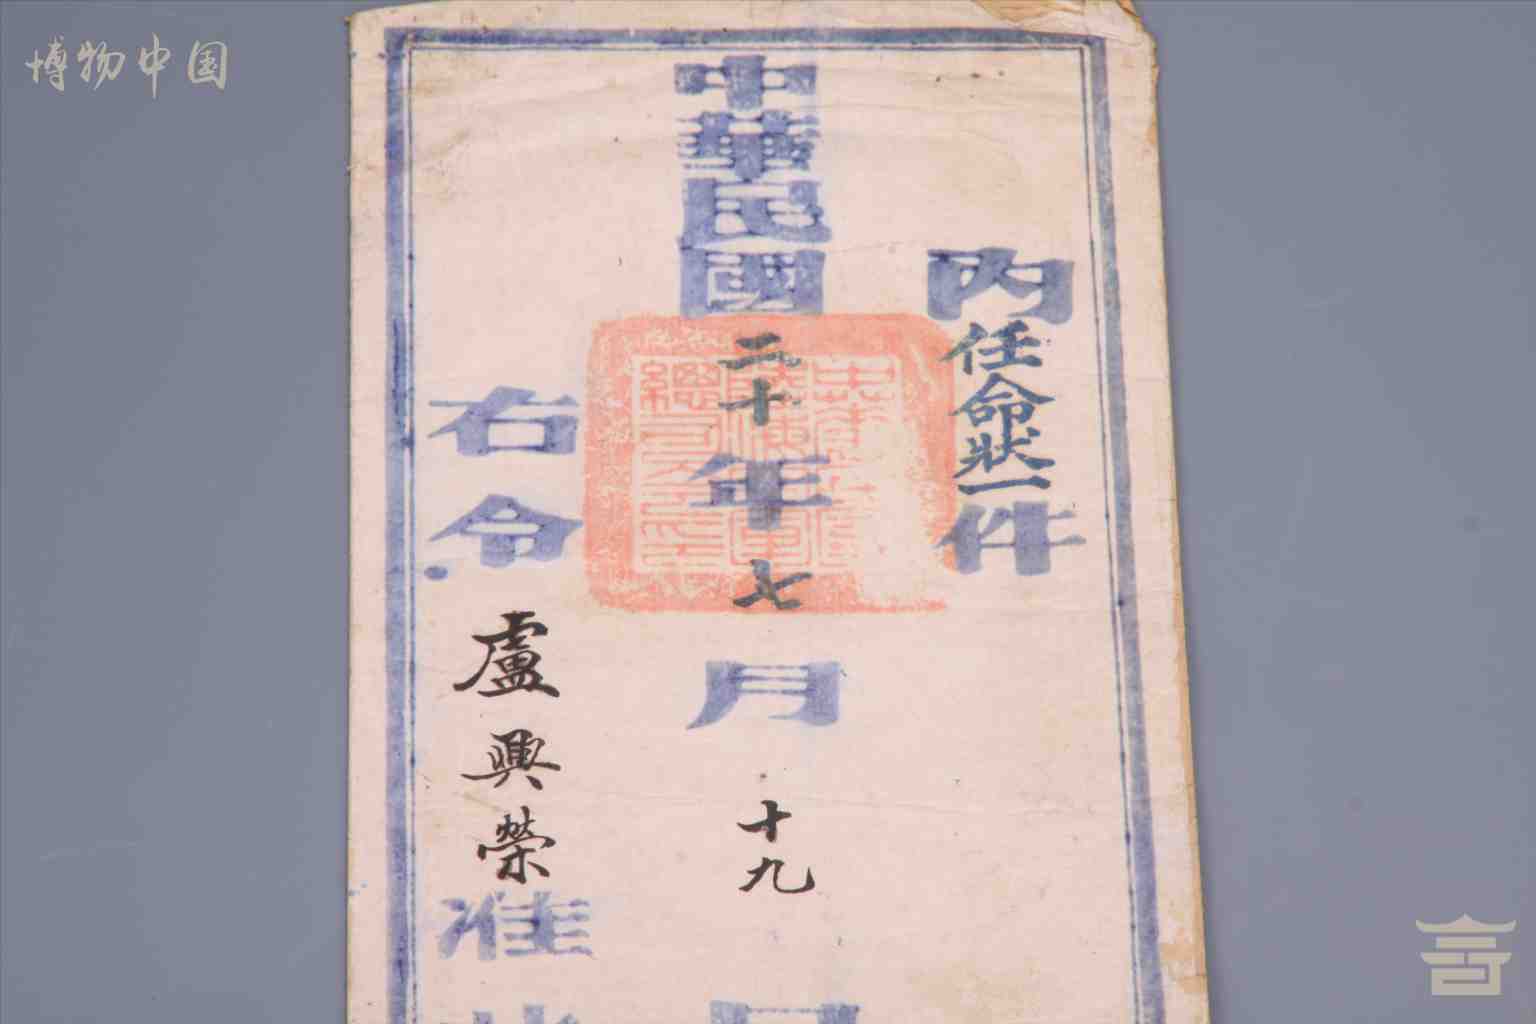 博物中国
內任命狀一件
中華民國二十年七月十九日
右令盧興榮准此